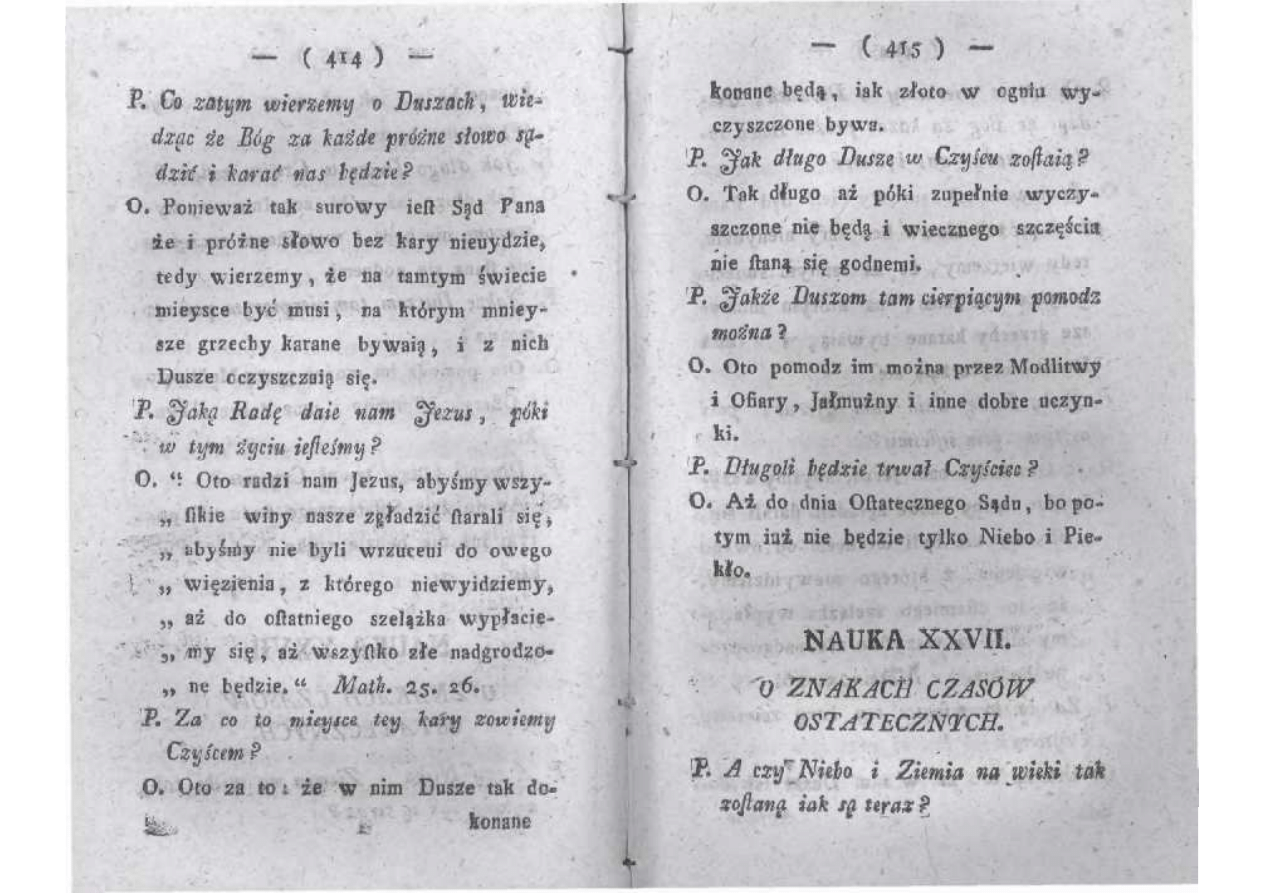 — ( 414 ) —
P. Co zatym wierzemy o Duszach, wie-
dząc że Bóg za każde próżne słowo są-
dzić i karać nas będzie?
O. Ponieważ tak surowy ieſt Sąd Pana
że i próżne słowo bez kary nieuydzie,
tedy wierzemy, że na tamtym świecie
mieysce być musi, na którym mniey-
sze grzechy karane bywaią, i z nich
Dusze oczyszczaią się.
P. Jaką Radę daie nam Jezus, póki
w tym życiu ieſteśmy?
O. “ Oto radzi nam Jezus, abyśmy wszy-
„ ſtkie winy nasze zgładzić ſtarali się,
„ abyśmy nie byli wrzuceni do owego
„ więzienia, z którego niewyidziemy,
„ aż do oſtatniego szelążka wypłacie-
„ my się, aż wszyſtko złe nadgrodzo-
„ ne będzie. “ Math. 25. 26.
P. Za co to mieysce tey kary zowiemy
Czyścem?
O. Oto za to: że w nim Dusze tak do-
konane
— ( 415 ) —
konane będą, iak złoto w ogniu wy-
czyszczone bywa.
P. Jak długo Dusze w Czyścu zoſtaią?
O. Tak długo aż póki zupełnie wyczy-
szczone nie będą i wiecznego szczęścia
nie ſtaną się godnemi.
P. Jakże Duszom tam cierpiącym pomodz
można?
O. Oto pomodz im można przez Modlitwy
i Ofiary, Jałmużny i inne dobre uczyn-
ki.
P. Długoli będzie trwał Czyściec?
O. Aż do dnia Oſtatecznego Sądu, bo po-
tym iuż nie będzie tylko Niebo i Pie-
kło.
NAUKA XXVII.
O ZNAKACH CZASÓW
OSTATECZNYCH.
P. A czy Niebo i Ziemia na wieki tak
zoſtaną iak są teraz?